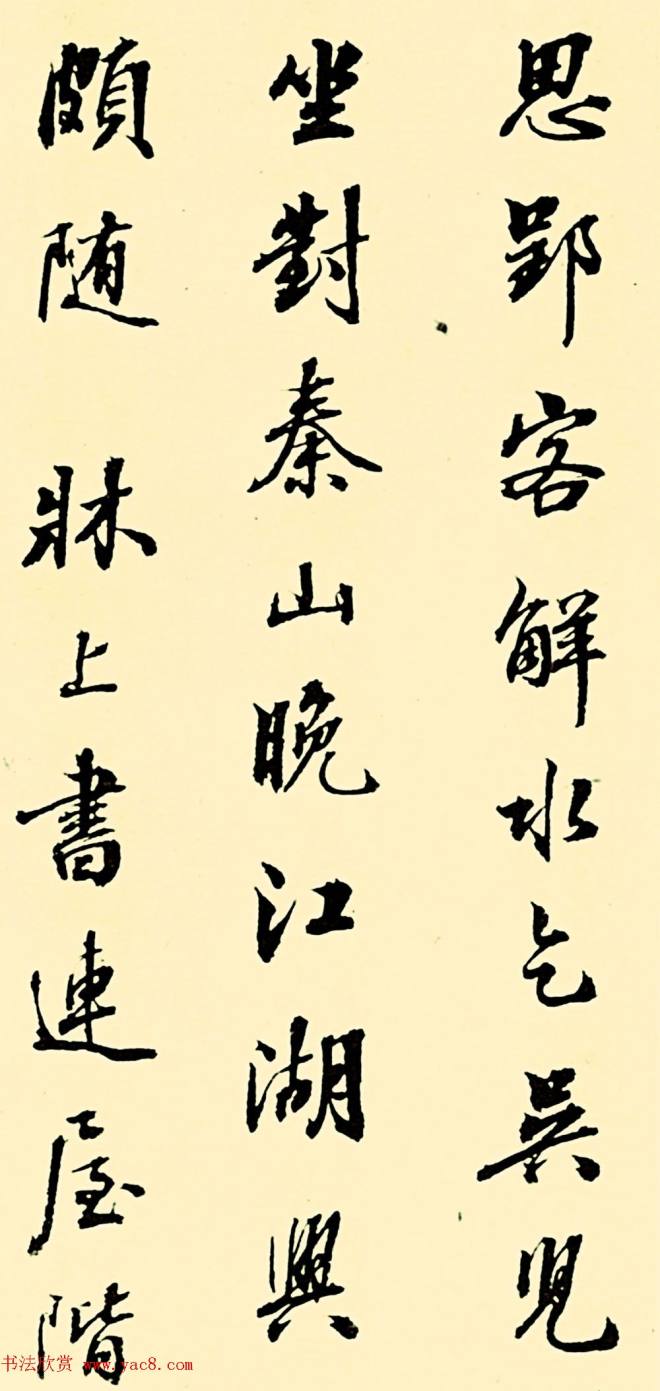 思郢客解水乞吴兒
坐對秦山晚江湖興
頗随牀上書連屋階
书法欣赏 www.yac8.com